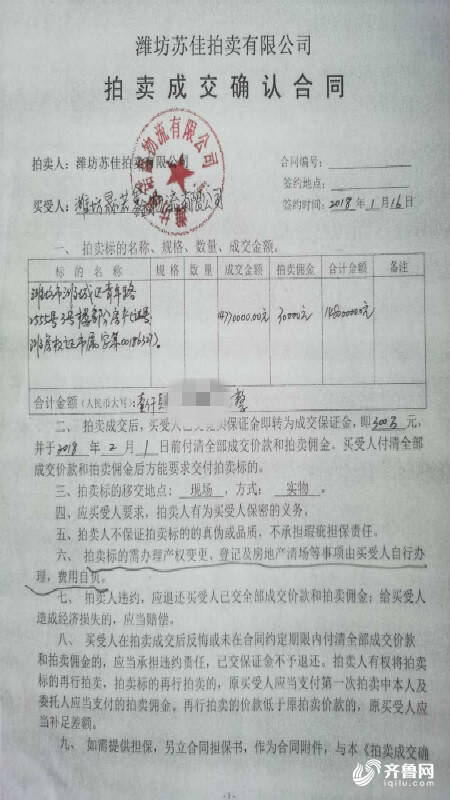 潍坊苏佳拍卖有限公司
拍卖成交确认合同
拍卖人：潍坊苏佳拍卖有限公司
合同编号：
签约地点：
买受人：潍坊 物流有限公司
签约时间：2018年1月16日
物流有限公司
一、拍卖标的名称、规格、数量、成交金额。
标的名称 规格 数量 成交金额 拍卖佣金 合计金额 备注
潍坊市潍城区青年路
2555号3号楼部分房产(证号 14770000.00元 30000元 14800000元
潍房权证市属字第00186327)。
合计金额（人民币大写）：壹仟 整
二、拍卖成交后，买受人已交竞买保证金即转为成交保证金，即300万元，
并于2018年2月1日前付清全部成交价款和拍卖佣金。买受人付清全部
成交价款和拍卖佣金后方能要求交付拍卖标的。
三、拍卖标的移交地点：现场，方式：实物。
四、应买受人要求，拍卖人有为买受人保密的义务。
五、拍卖人不保证拍卖标的的真伪或品质，不承担瑕疵担保责任。
六、拍卖标的需办理产权变更、登记及房地产清场等事项由买受人自行办
理，费用自负。
七、拍卖人违约，应退还买受人已交全部成交价款和拍卖佣金；给买受人
造成经济损失的，应当赔偿。
八、买受人在拍卖成交后反悔或未在合同约定期限内付清全部成交价款
和拍卖佣金的，应当承担违约责任，已交保证金不予退还。拍卖人有权将拍卖
标的再行拍卖，拍卖标的再行拍卖的，原买受人应当支付第一次拍卖中本人及
委托人应当支付的拍卖佣金。再行拍卖的价款低于原拍卖价款的，原买受人应
当补足差额。
九、如需提供担保，另立合同担保书，作为合同附件，与本《拍卖成交确
-1-
齐鲁网